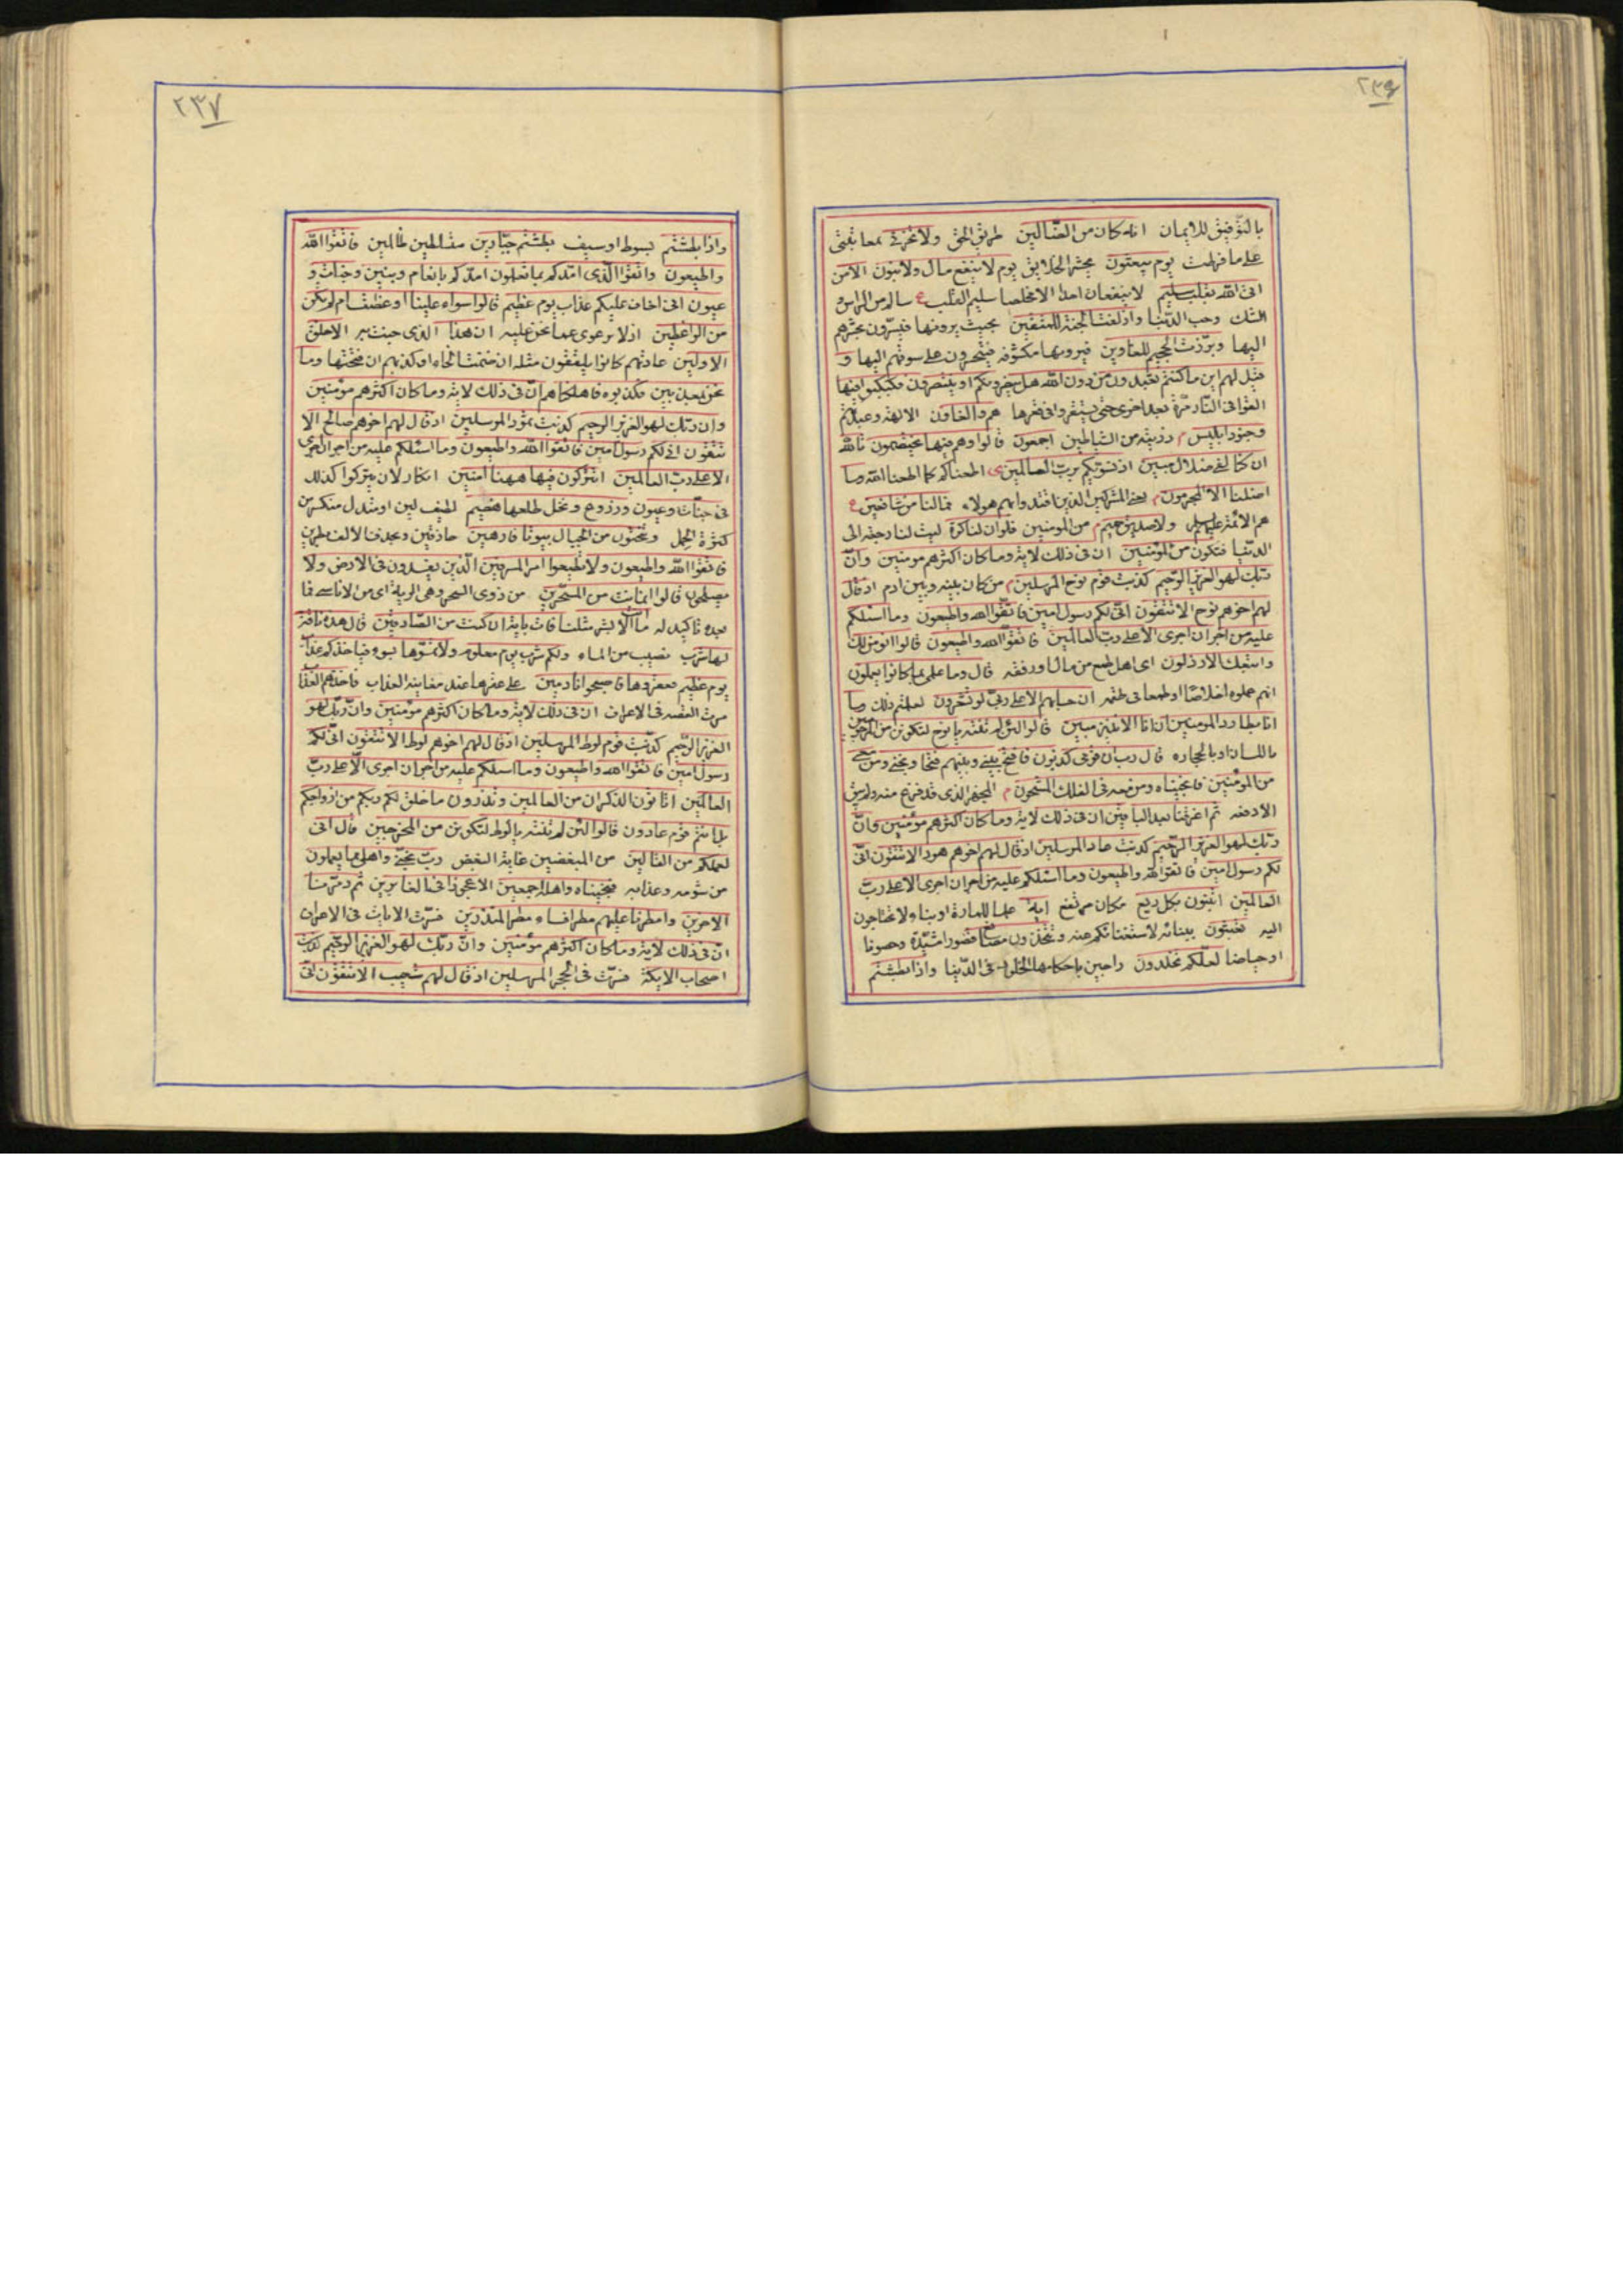 ٢٣٦
بالتوفيق للايمان انه كان من الضالين طريق الحق ولا تخزني بمعاتبتي
على ما فرطت يوم يبعثون يحشر الخلايق يوم لا ينفع مال ولا بنون الا من
اتى الله بقلب سليم لا ينفعان احدا الا مخلصا سليم القلب ع سالم من
الشك وحب الدنيا وازلفت الجنة للمتقين بحيث يرونها فيسرون بحشرهم
اليها وبرزت الجحيم للغاوين فيرونها مكشوفه فيتحسرون على سوقهم اليها و
قيل لهم اين ما كنتم تعبدون من دون الله هل ينصرونكم او ينتصرون فكبكبوا فيها
القوا في النار مرة بعد اخرى حتى يستقروا في قعرها هم والغاون الالهة وعبدتهم
وجنود ابليس م ذريته من الشياطين اجمعون قالوا وهم فيها يختصمون تالله
ان كنا لفي ضلال مبين اذ نسويكم برب العالمين ى اطعناكم كما اطعنا الله وما
اضلنا الا المجرمون م يعني المشركين الذين اقتدوا بهم هولاء فما لنا من شافعين ع
هم الائمة ولا صديق حميم م من المومنين فلو ان لنا كرة ليت لنا رجعة الى
الدنيا فنكون من المؤمنين ان في ذلك لاية وما كان اكثرهم مومنين وان
ربك لهو العزيز الرحيم كذبت قوم نوح المرسلين م من كان بينه وبين ادم اذ قال
لهم اخوهم نوح الا تتقون اني لكم رسول امين فاتقوا الله واطيعون وما اسئلكم
عليه من اجر ان اجرى الا على رب العالمين فاتقوا الله واطيعون قالوا انومن لك
واتبعك الارذلون اى اهل الطمع من مال او رفعه قال وما علمى بما كانوا يعملون
انهم عملوه اخلاصا او طمعا في طعمه ان حسابهم الا على ربى لو تشعرون لعلمتم ذلك وما
انا بطارد المومنين ان انا الا نذير مبين قالوا لئن لم تنته يا نوح لتكونن من المرجومين
باللسان او بالحجاره قال رب ان قومى كذبون فافتح بيني وبينهم فتحا ونجنى ومن معى
من المؤمنين فانجيناه ومن معه في الفلك المشحون م المجهز الذى قد فرغ منه ولم يبق
الا دفعه ثم اغرقنا بعد الباقين ان في ذلك لاية وما كان اكثرهم مؤمنين وان
ربك لهو العزيز الرحيم كذبت عاد المرسلين اذ قال لهم اخوهم هود الا تتقون انى
لكم رسول امين فاتقوا الله واطيعون وما اسئلكم عليه من اجر ان اجرى الا على رب
العالمين اتبنون بكل ريع مكان مرتفع اية علما للمارة او بناء لا تحتاجون
اليه تعبثون ببنائه لاستغنائكم عنه وتتخذون مصانع قصورا مشيدة وحصونا
او حياضا لعلكم تخلدون راجين باحكامها الخلود في الدنيا واذا بطشتم
٢٣٧
واذا بطشتم بسوط او سيف بطشتم جبارين متسلطين ظالمين فاتقوا الله
واطيعون واتقوا الذى امدكم بما تعلمون امدكم بانعام وبنين وجنات و
عيون انى اخاف عليكم عذاب يوم عظيم قالوا سواء علينا اوعظت ام لم تكن
من الواعظين اذ لا نرعوى عما نحن عليه ان هذا الذى جئت به الا خلق
الاولين عادتهم كانوا يلفقون مثله ان ضمت الخاء او كذبهم ان فتحتها وما
نحن بمعذبين فكذبوه فاهلكناهم ان فى ذلك لاية وما كان اكثرهم مؤمنين
وان ربك لهو العزيز الرحيم كذبت ثمود المرسلين اذ قال لهم اخوهم صالح الا
تتقون انى لكم رسول امين فاتقوا الله واطيعون وما اسئلكم عليه من اجر ان اجرى
الا على رب العالمين اتتركون فيها ههنا امنين انكار لان يتركوا كذلك
في جنات وعيون وزروع ونخل طلعها هضيم لطيف لين او متدل منكسر من
كثرة الحمل وتنحتون من الجبال بيوتا فارهين حاذقين وبحذف الالف بطرين
فاتقوا الله واطيعون ولا تطيعوا امر المسرفين الذين يفسدون فى الارض ولا
يصلحون قالوا انما انت من المسحرين من ذوى السحر وهى الرية اى من الاناسى فما
بعده تاكيد له ما انت الا بشر مثلنا فات باية ان كنت من الصادقين قال هذه ناقة
لها شرب نصيب من الماء ولكم شرب يوم معلوم ولا تمسوها بسوء فياخذكم عذاب
يوم عظيم فعقروها فاصبحوا نادمين على عقرها عند معاينة العذاب فاخذهم العذاب
مرت القصه فى الاعراف ان فى ذلك لاية وما كان اكثرهم مؤمنين وان ربك لهو
العزيز الرحيم كذبت قوم لوط المرسلين اذ قال لهم اخوهم لوط الا تتقون انى لكم
رسول امين فاتقوا الله واطيعون وما اسئلكم عليه من اجر ان اجرى الا على رب
العالمين اتاتون الذكران من العالمين وتذرون ما خلق لكم ربكم من ازواجكم
بل انتم قوم عادون قالوا لئن لم تنته يا لوط لتكونن من المخرجين قال انى
لعملكم من القالين من المبغضين غاية البغض رب نجنى واهلى مما يعملون
من شومه وعذابه فنجيناه واهله اجمعين الا عجوزا فى الغابرين ثم دمرنا
الاخرين وامطرنا عليهم مطرا فساء مطر المنذرين فسرت الايات فى الاعراف
ان فى ذلك لاية وما كان اكثرهم مؤمنين وان ربك لهو العزيز الرحيم كذب
اصحاب الايكة فسرت فى الحجر المرسلين اذ قال لهم شعيب الا تتقون انى